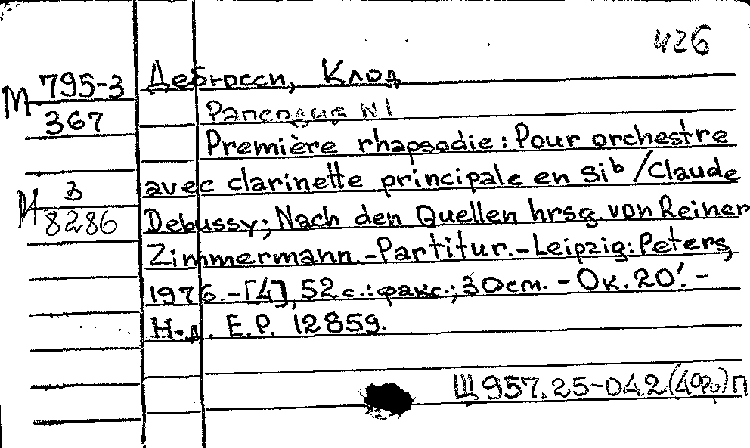 426
М 795-3 Дебюсси, Клод
367 Рапсодия N1
Première rhapsodie: Pour orchestre
И З avec clarinette principale en Si b /Claude
8286 Debussy; Nach den Quellen hrsg. von Reiner
Zimmermann.-Partitur.-Leipzig: Peters,
1976.-[4], 52 с.: факс.; 30см. - Ок. 20'. -
Н.д. E.P. 12859.
Щ957.25-042(4Фр)п